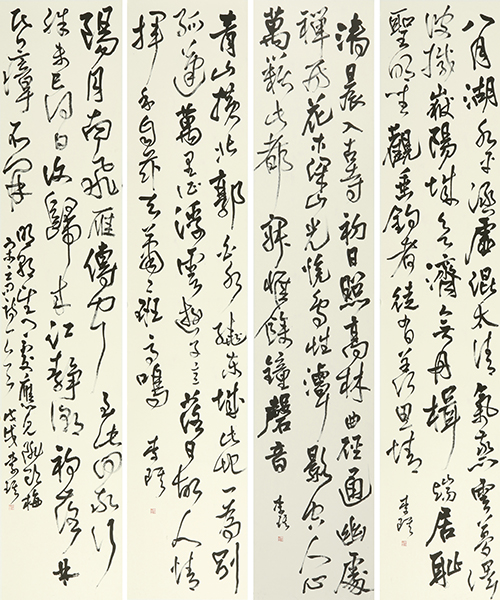 八月湖水平涵虛混太清氣蒸雲夢澤
波撼嶽陽城欲濟無舟楫端居恥
聖明坐觀垂釣者徒有羨魚情
清晨入古寺初日照高林曲徑通幽處
禪房花木深山光悅鳥性潭影空人心
萬籟此都寂惟餘鐘磬音
青山橫北郭白水繞東城此地一為別
孤蓬萬里征浮雲遊子意落日故人情
揮手自茲去蕭蕭班馬鳴
陽月南飛雁傳聞至此回我行
殊未已何日復歸來江靜潮初落林
昏瘴不開
明朝望鄉處應見隴頭梅
宋之問詩一首戊戌